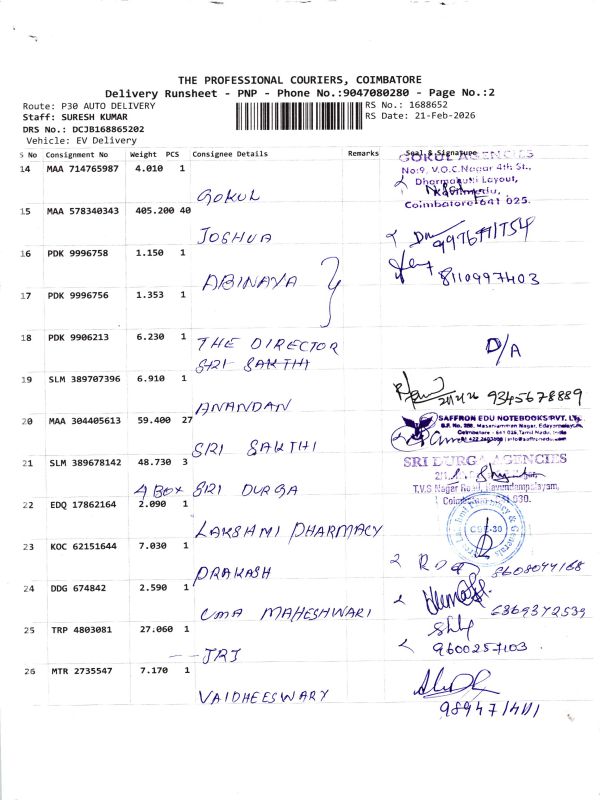 THE PROFESSIONAL COURIERS, COIMBATORE
Delivery Runsheet - PNP - Phone No.:9047080280 - Page No.:2
Route: P30 AUTO DELIVERY
RS No.: 1688652
Staff: SURESH KUMAR
RS Date: 21-Feb-2026
DRS No.: DCJB168865202
Vehicle: EV Delivery
S No Consignment No Weight PCS Consignee Details Remarks Seal & Signature
14 MAA 714765987 4.010 1
GOKUL
GOKUL AGENCIES
No:9, V.O.C.Nagar 4th St.,
Layout,
Coimbatore-641 025.
15 MAA 578340343 405.200 40
JOSHUA
16 PDK 9996758 1.150 1
ABINAYA
8110997403
17 PDK 9996756 1.353 1
18 PDK 9906213 6.230 1
THE DIRECTOR
SRI SAKTHI
D/A
19 SLM 389707396 6.910 1
ANANDAN
9345678889
20 MAA 304405613 59.400 27
SRI SAKTHI
SAFFRON EDU NOTEBOOKS PVT. LTD.
21 SLM 389678142 48.730 3
4 BOX SRI DURGA
SRI DURGA AGENCIES
T.V.S Nagar Road,
22 EDQ 17862164 2.090 1
LAKSHMI PHARMACY
23 KOC 62151644 7.030 1
PRAKASH
24 DDG 674842 2.590 1
UMA MAHESHWARI
6369372539
25 TRP 4803081 27.060 1
JRJ
9600257103
26 MTR 2735547 7.170 1
VAIDHEESWARY